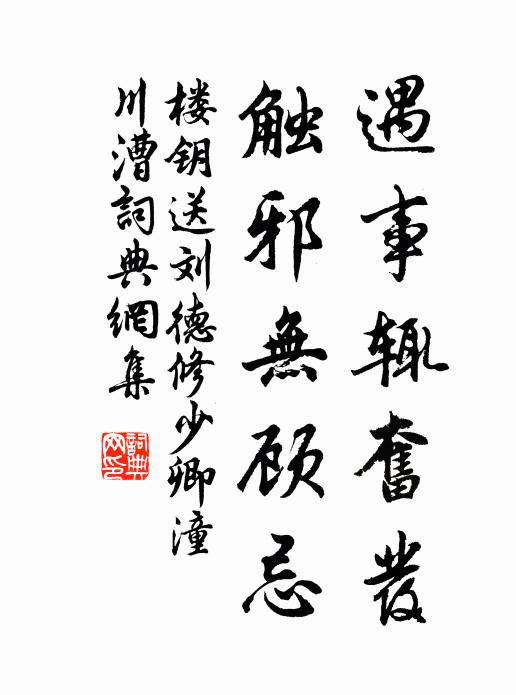 遇事辄奮發
触邪無顾忌
楼钥送刘德修少卿潼
川漕詞典網集
詞典
网印